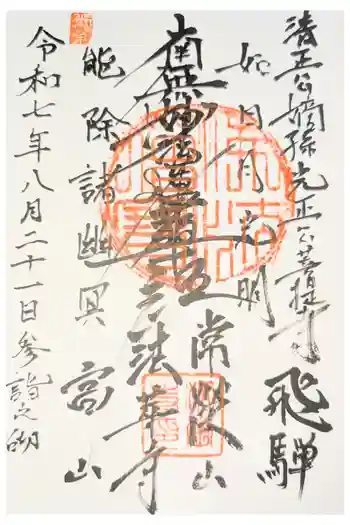 清正公嫡孫光正公菩提寺
飛騨
如日月光明
常燈山
南無妙法蓮華経
法華寺
能除諸幽冥
高山
令和七年八月二十一日参詣之砌